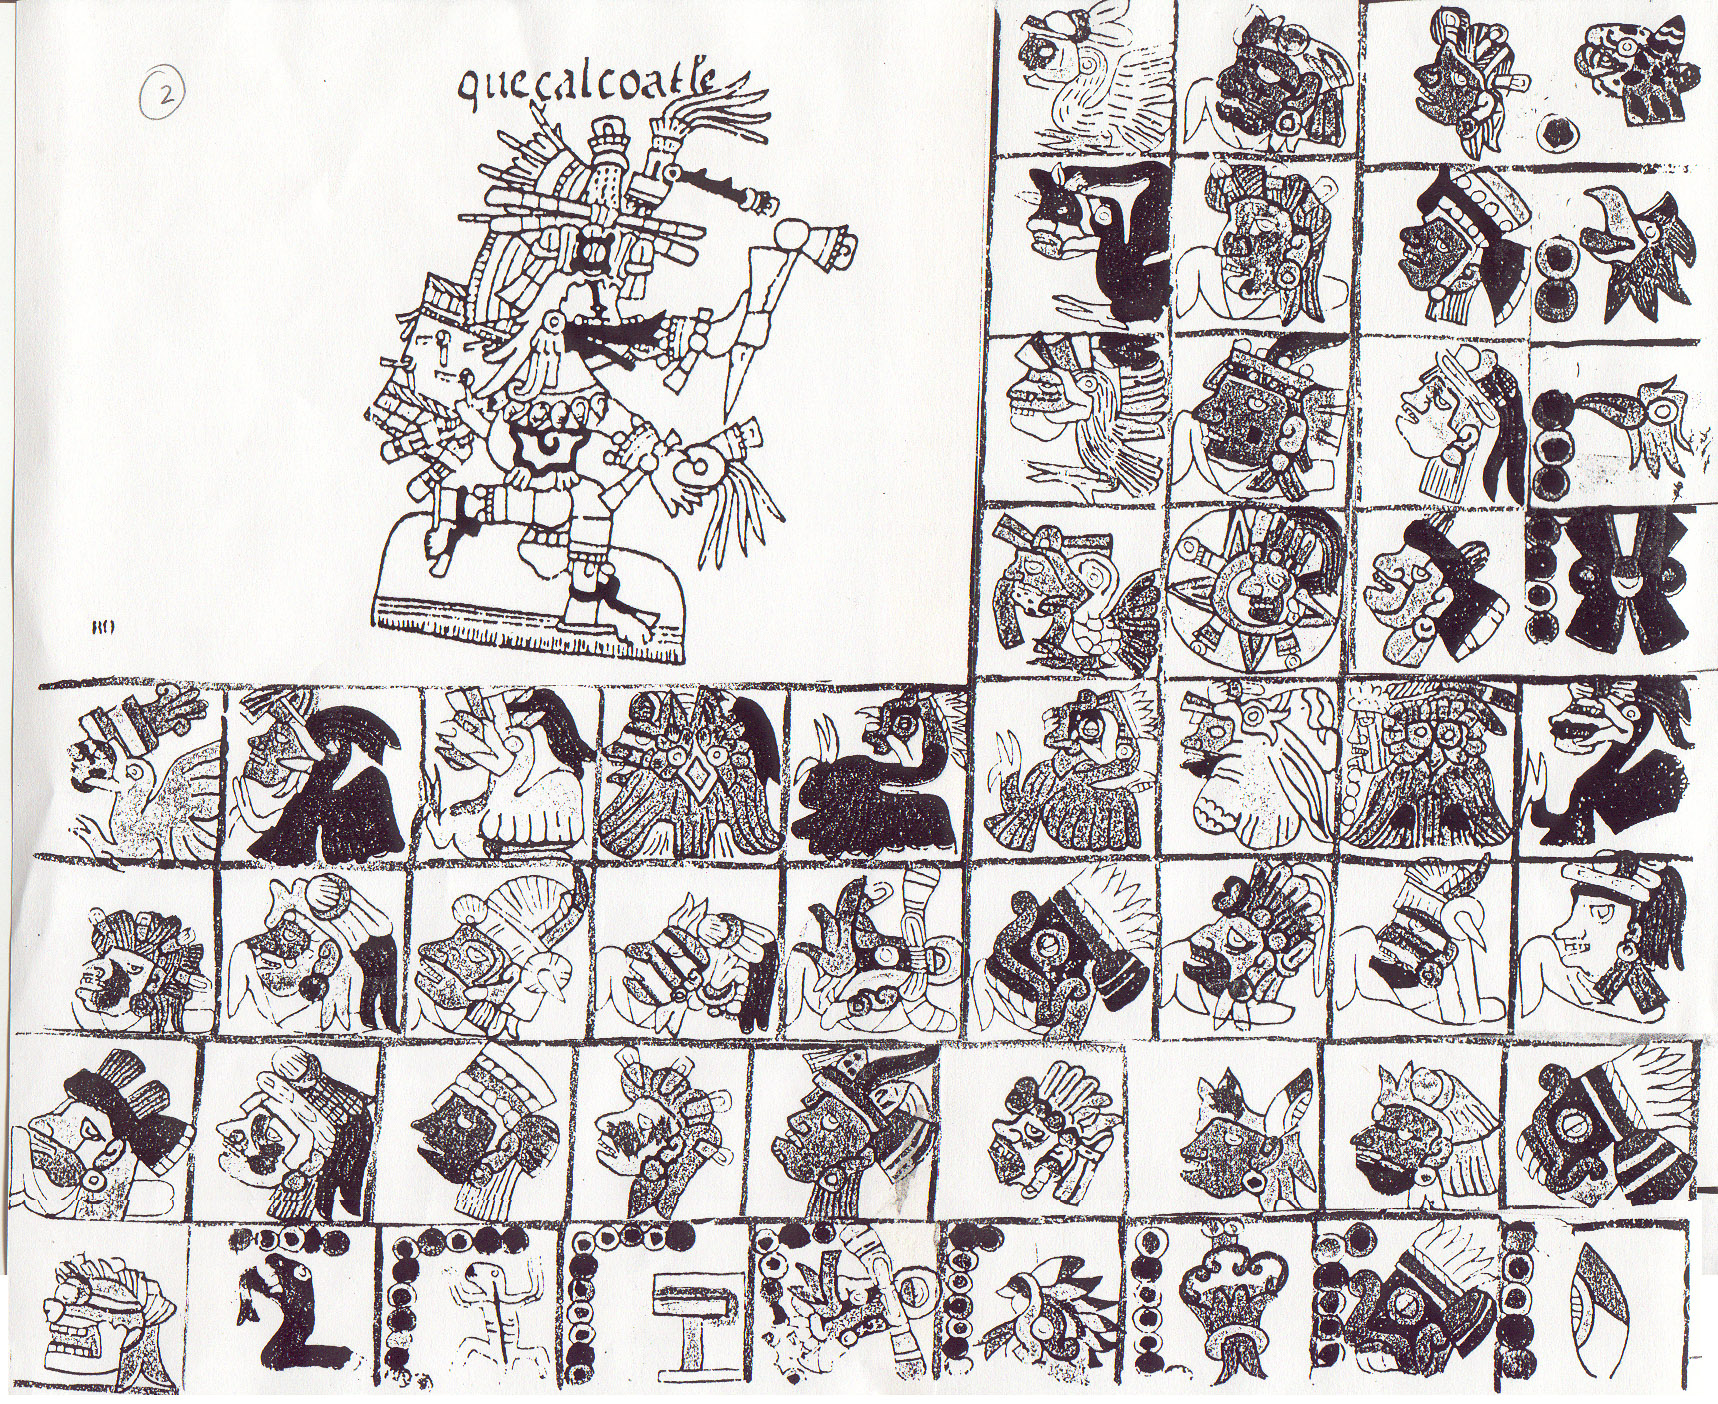 2
queçalcoatle